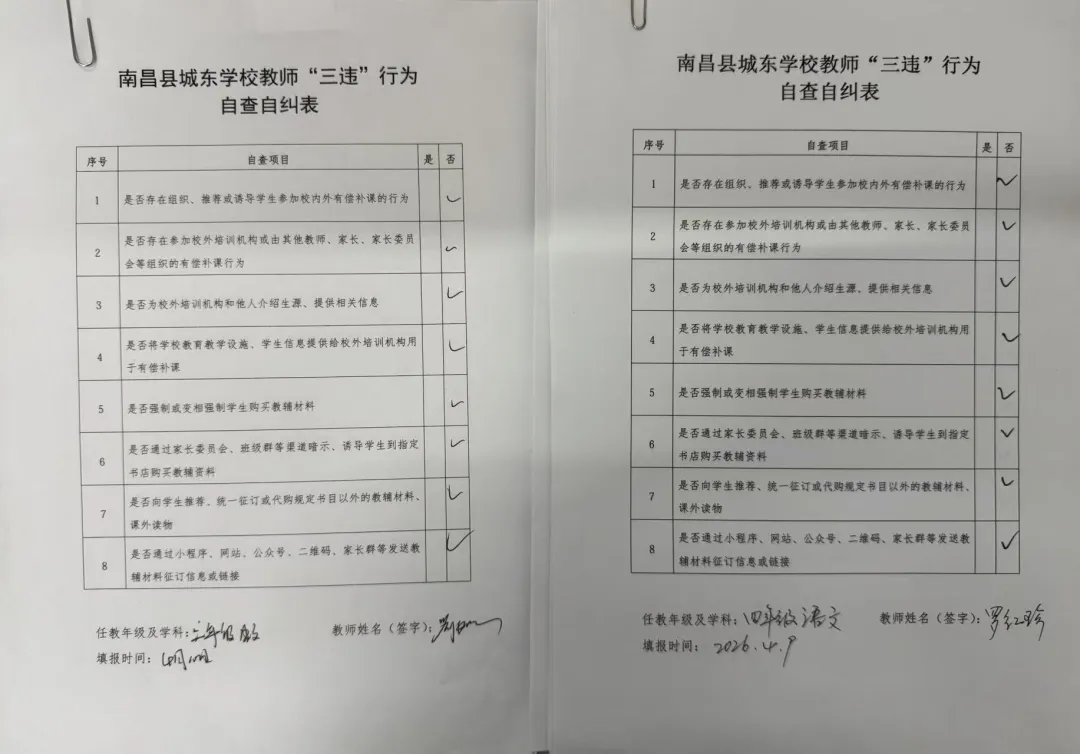 南昌县城东学校教师“三违”行为
自查自纠表
序号 自查项目 是 否
1 是否存在组织、推荐或诱导学生参加校内外有偿补课的行为
2 是否存在参加校外培训机构或由其他教师、家长、家长委员
会等组织的有偿补课行为
3 是否为校外培训机构和他人介绍生源、提供相关信息
4 是否将学校教育教学设施、学生信息提供给校外培训机构用
于有偿补课
5 是否强制或变相强制学生购买教辅材料
6 是否通过家长委员会、班级群等渠道暗示、诱导学生到指定
书店购买教辅资料
7 是否向学生推荐、统一征订或代购规定书目以外的教辅材料、
课外读物
8 是否通过小程序、网站、公众号、二维码、家长群等发送教
辅材料征订信息或链接
任教年级及学科: 教师姓名(签字):
填报时间:
南昌县城东学校教师“三违”行为
自查自纠表
序号 自查项目 是 否
1 是否存在组织、推荐或诱导学生参加校内外有偿补课的行为
2 是否存在参加校外培训机构或由其他教师、家长、家长委员
会等组织的有偿补课行为
3 是否为校外培训机构和他人介绍生源、提供相关信息
4 是否将学校教育教学设施、学生信息提供给校外培训机构用
于有偿补课
5 是否强制或变相强制学生购买教辅材料
6 是否通过家长委员会、班级群等渠道暗示、诱导学生到指定
书店购买教辅资料
7 是否向学生推荐、统一征订或代购规定书目以外的教辅材料、
课外读物
8 是否通过小程序、网站、公众号、二维码、家长群等发送教
辅材料征订信息或链接
任教年级及学科:四年级语文 教师姓名(签字):罗红珍
填报时间: 2026.4.9